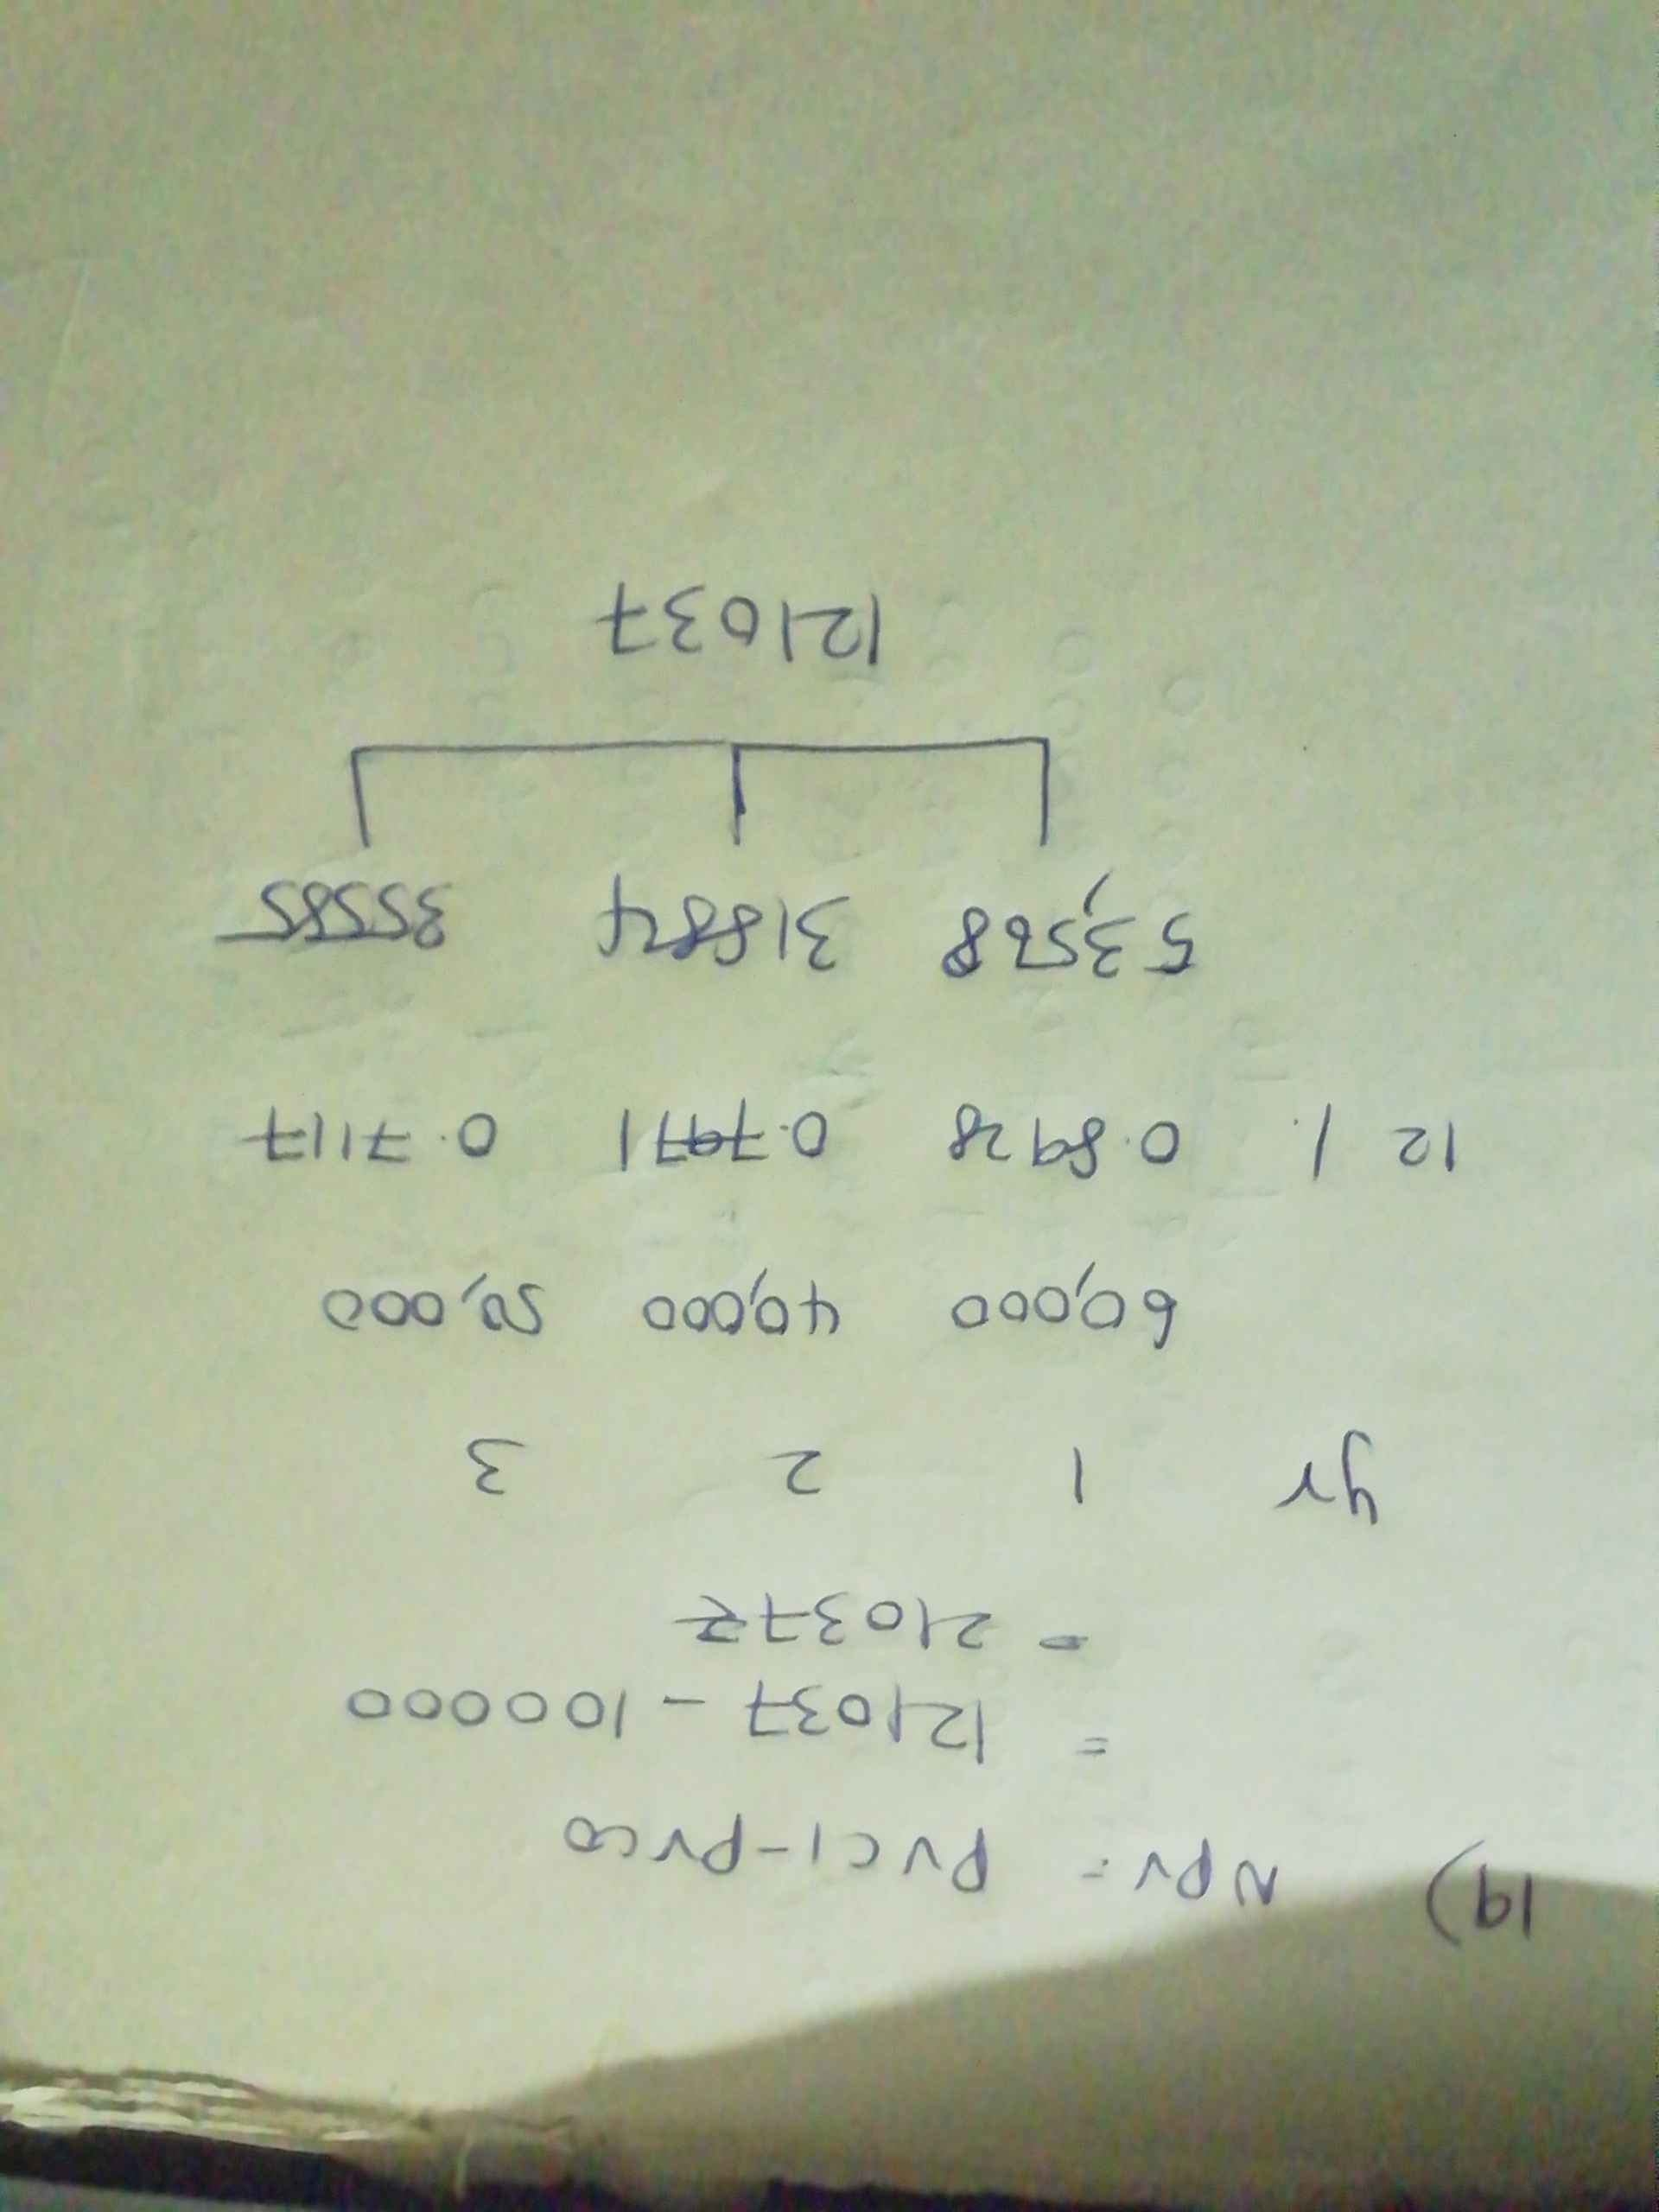 19) NPV = PVCI-PVCO
= 121037 - 100000
= 21037 ₹
yr 1 2 3
60,000 40,000 50,000
12 1. 0.8928 0.7971 0.7117
53,568 31884 35585
121037